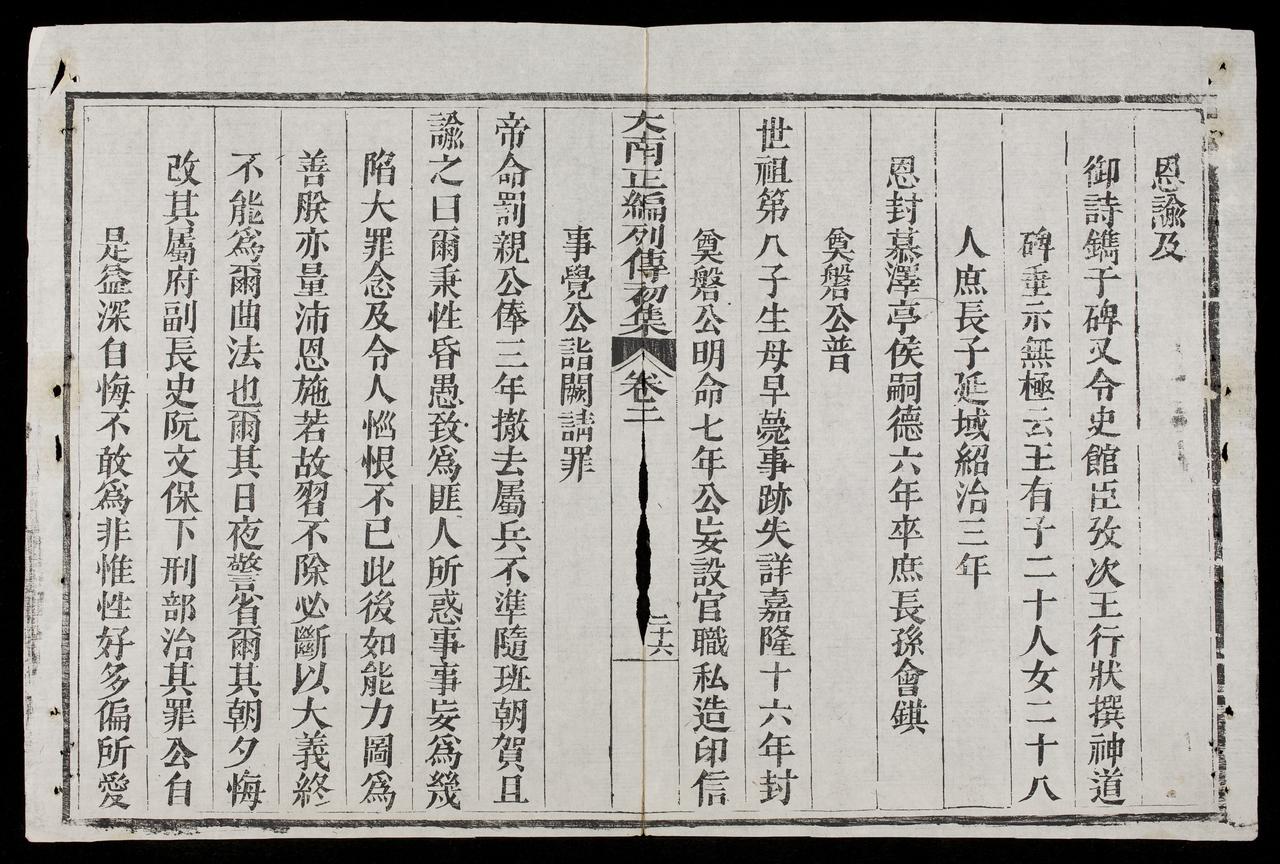 恩諭及
御詩鐫于碑又令史館臣攷次王行狀撰神道
碑垂示無極云王有子二十人女二十八
人庶長子延域紹治三年
恩封慕澤亭侯嗣德六年卒庶長孫會鍖
奠磐公普
世祖第八子生母早薨事跡失詳嘉隆十六年封
奠磐公明命七年公妄設官職私造印信
大南正編列傳初集 卷二 二十六
事覺公詣闕請罪
帝命罰親公俸三年撤去屬兵不準隨班朝賀且
諭之曰爾秉性昏愚致爲匪人所惑事事妄爲幾
陷大罪念及令人惱恨不已此後如能力圖爲
善朕亦量沛恩施若故習不除必斷以大義終
不能爲爾曲法也爾其日夜警省爾其朝夕悔
改其屬府副長史阮文保下刑部治其罪公自
是益深自悔不敢爲非惟性好多偏所愛